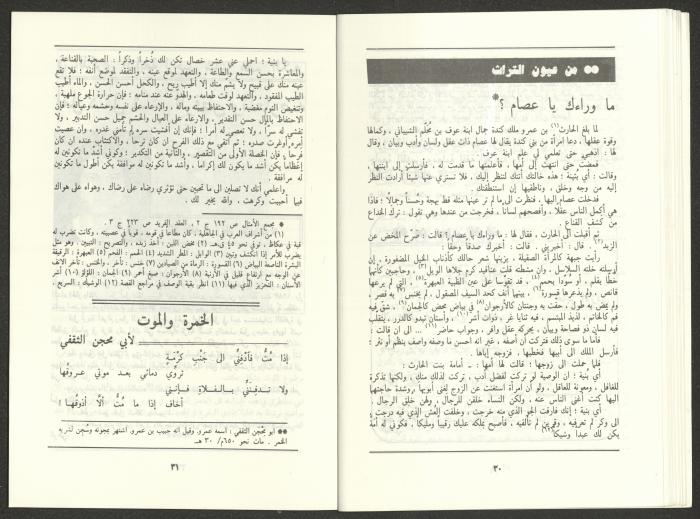 ** من عيون التراث
ما وراءك يا عصام ؟*
لما بلغ الحارث(١) بن عمرو ملك كندة جمال ابنة عوف بن مُحَلِّم الشيباني ، وكمالها
وقوة عقلها ، دعا امرأة من بني كندة يقال لها عصام ذات عقل ولسان وأدب وبيان ، وقال
لها : اذهبي حتى تعلمي لي علم ابنة عوف .
فمضت حتى انتهت إلى أمها ، فأعلمتها ما قدمت له ، فأرسلت إلى ابنتها ،
وقالت : أي بنية : هذه خالتك أتتك لتنظر إليك ، فلا تستري عنها شيئاً أرادت النظر
إليه من وجه وخلق ، وناطقيها إن استنطقتك .
فدخلت عصام إليها ، فنظرت الى ما لم تر عينها مثله قط بهجة وحُسناً وجمالاً ؛ فاذا
هي أكمل الناس عقلاً ، وأفصحهم لساناً ، فخرجت من عندها وهي تقول : ترك الخداع
من كشف القناع .
ثم أقبلت الى الحارث ، فقال لها : ما وراءك يا عصام ؟ قالت : صَرَّح المخض عن
الزبد(٢) . قال : أخبريني . قالت : أخبرك صدقاً وحقاً :
رأيت جبهة كالمرآة الصقيلة ، يزينها شعر حالك كأذناب الخيل المضفورة ، إن
أرسلته خلته السلاسل ، وان مشطته قلت عناقيد كرم جلاها الوبل(٣) ، وحاجبين كأنهما
خُطّا بقلم ، أو سُوّدا بحمم(٤) ، قد تقوّسا على عين الظبية العبهرة(٥) ، التي لم يرعها
قانص ، ولم يذعرها قسورة(٦) ، بينهما أنف كحد السيف المصقول ، لم يخنس به قصر ،
ولم يمض به طول ، حفت به وجنتان كالأرجوان(٨) في بياض محض كالجمان(٩) ، شق فيه
فم كالخاتم ، لذيذ المبتسم ، فيه ثنايا غر ، ذوات أشر(١٠) ، وأسنان تبدو كالدرر ، يتقلب
فيه لسان ذو فصاحة وبيان ، يحركه عقل وافر ، وجواب حاضر ... الى ان قالت :
فأما ما سوى ذلك فتركت أن أصفه ، غير انه احسن ما وصفه واصف بنظم أو نثر ؛
فأرسل الملك الى أبيها فخطبها ، فزوجه إياها .
فلما حملت الى زوجها ؛ قالت لها أمها : ـ أمامة بنت الحارث :
أي بنية ؛ ان الوصية لو تركت لفضل أدب ، تركت لذلك منك ، ولكنها تذكرة
للغافل ، ومعونة للعاقل ، ولو أن امرأة استغنت عن الزوج لغنى أبويها ، وشدة حاجتهما
اليها كنت أغنى الناس عنه ، ولكن النساء خلقن للرجال ، ولهن خلق الرجال .
أي بنية ؛ إنك فارقت الجو الذي منه خرجت ، وخلفت العُش الذي فيه درجت ،
الى وكر لم تعرفيه ، وقرين لم تألفيه ، فأصبح بملكه عليك رقيباً ومليكاً ، فكوني له أمة
يكن لك عبداً وشيكاً(١٢)
٣٠
يا بنية ؛ احملي عني عشر خصال تكن لك ذُخراً وذكراً : الصحبة بالقناعة ،
والمعاشرة بحسن السمع والطاعة ، والتعهد لموقع عينه ، والتفقد لموضع أنفه ؛ فلا تقع
عينه منك على قبيح ولا يشم منك إلا أطيب ريح ، والكحل أحسن الحسن ، والماء أطيب
الطيب المفقود ، والتعهد لوقت طعامه ، والهدوّ عنه عند منامه ؛ فان حرارة الجوع ملهبة ،
وتنغيص النوم مغضبة ، والاحتفاظ ببيته وماله ، والإرعاء على نفسه وحشمه وعياله ؛ فان
الاحتفاظ بالمال حسن التقدير ، والإرعاء على العيال والحشم جميل حسن التدبير ، ولا
تفشي له سراً ، ولا تعصي له أمراً ؛ فإنك إن أفشيت سره لم تأمني غدره ، وان عصيت
أمره أوغرت صدره ؛ ثم اتقي مع ذلك الفرح ان كان ترحاً ، والاكتئاب عنده ان كان
فرحاً ، فإن الخصلة الأولى من التقصير ، والثانية من التكدير ؛ وكوني أشد ما تكونين له
إعظاماً يكن أشد ما يكون لك إكراماً ، وأشد ما تكونين له موافقة يكن أطول ما تكونين
له مرافقة .
واعلمي أنك لا تصلين الى ما تحبين حتى تؤثري رضاه على رضاك ، وهواه على هواك
فيما أحببت وكرهت ، والله يخير لك .
* مجمع الأمثال ص ١٩٢ ج ٢ ، العقد الفريد ص ٢٢٣ ج ٣ .
(١) من أشراف العرب في الجاهلية ، كان مطاعاً في قومه ، قوياً في عصبيته ، وكانت تضرب له
قبة في عكاظ ، توفي نحو ٤٥ ق.هـ.
الخمرة والموت
لأبي محجن الثقفي
إذا مُتُّ فآدفِنّي الى جَنْبِ كَرْمَةٍ
تروّي دمائي بعد موتي عروقُها
ولا تدفِنَنِّي بالفلاةِ فإنني
أخاف إذا ما مُتُّ ألّا أذوقُها !
** أبو محجن الثقفي ، اسمه عمرو، وقيل انه حبيب بن عمرو، اشتهر بمجونه وسُجن لشربه
الخمر . مات نحو ٦٥٠م/ ٣٠ هـ.
٣١